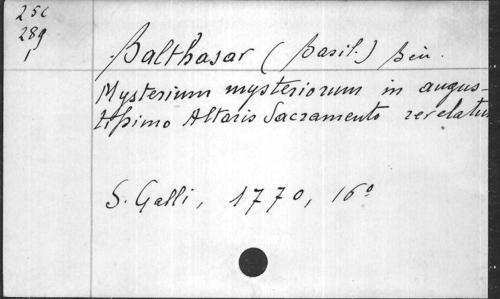 256
289
1
Balthasar (Basil.) Ben.
Mysterium mysteriorum in augus-
tissimo Altaris Sacramento revelatum
S. Galli, 1770, 16°